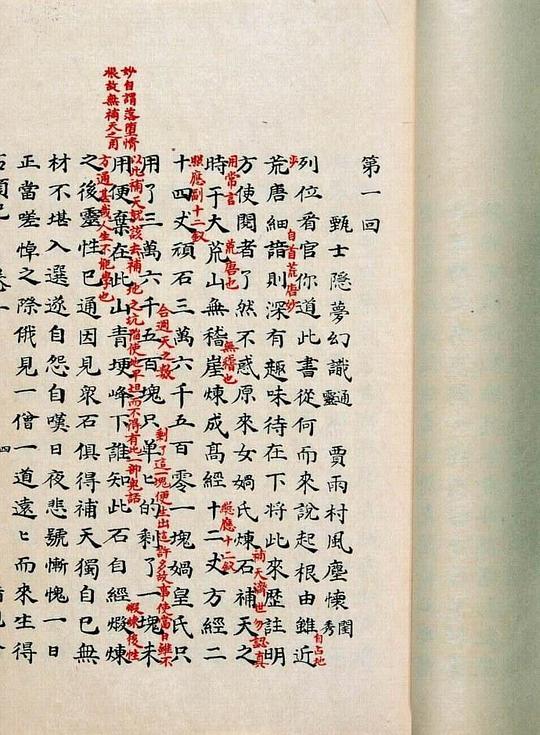 第一回
甄士隱夢幻識通靈 賈雨村風塵懷閨秀
列位看官你道此書從何而來說起根由雖近
自占地步
自首荒唐妙
荒唐細諳則深有趣味待在下將此來歷註明
方使閱者了然不惑原來女媧氏煉石補天之
補天濟世勿認真
用常言
時于大荒山無稽崖煉成高經十二丈方經二
荒唐也
無稽也
照應十二釵
照應副十二釵
十四丈頑石三萬六千五百零一塊媧皇氏只
合週天之數
用了三萬六千五百塊只單匕的剩了一塊未
剩了這一塊便生出這許多故事使當日雖不
以此補天就該去補地之坑陷使地平坦而不得有此一部鬼話
用便棄在此山青埂峰下誰知此石自經煅煉
妙自謂落墮情
根故無補天之用
煅煉後性
方通甚哉人生不能學也
之後靈性已通因見衆石俱得補天獨自己無
材不堪入選遂自怨自嘆日夜悲號慚愧一日
正當嗟悼之際俄見一僧一道遠匕而來生得